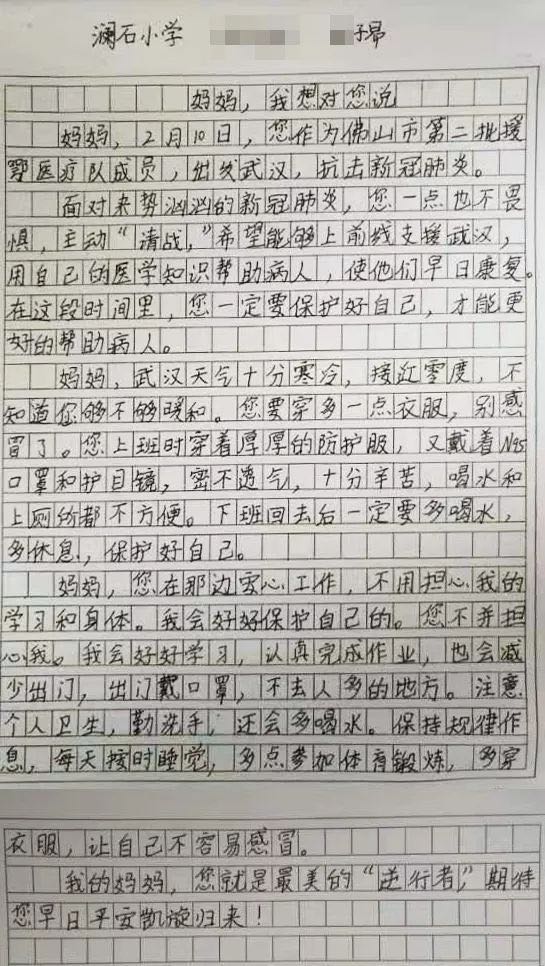 澜石小学 子昂
妈妈，我想对您说
妈妈，2月10日，您作为佛山市第二批援
鄂医疗队成员，出发武汉，抗击新冠肺炎。
面对来势汹汹的新冠肺炎，您一点也不畏
惧，主动“请战，”希望能够上前线支援武汉，
用自己的医学知识帮助病人，使他们早日康复。
在这段时间里，您一定要保护好自己，才能更
好的帮助病人。
妈妈，武汉天气十分寒冷，接近零度，不
知道您够不够暖和。您要穿多一点衣服，别感
冒了。您上班时穿着厚厚的防护服，又戴着N95
口罩和护目镜，密不透气，十分辛苦，喝水和
上厕所都不方便。下班回去后一定要多喝水，
多休息，保护好自己。
妈妈，您在那边安心工作，不用担心我的
学习和身体。我会好好保护自己的。您不并担
心我。我会好好学习，认真完成作业，也会减
少出门，出门戴口罩，不去人多的地方。注意
个人卫生，勤洗手，还会多喝水。保持规律作
息，每天按时睡觉，多点参加体育锻炼，多穿
衣服，让自己不容易感冒。
我的妈妈，您就是最美的“逆行者，”期待
您早日平安凯旋归来！